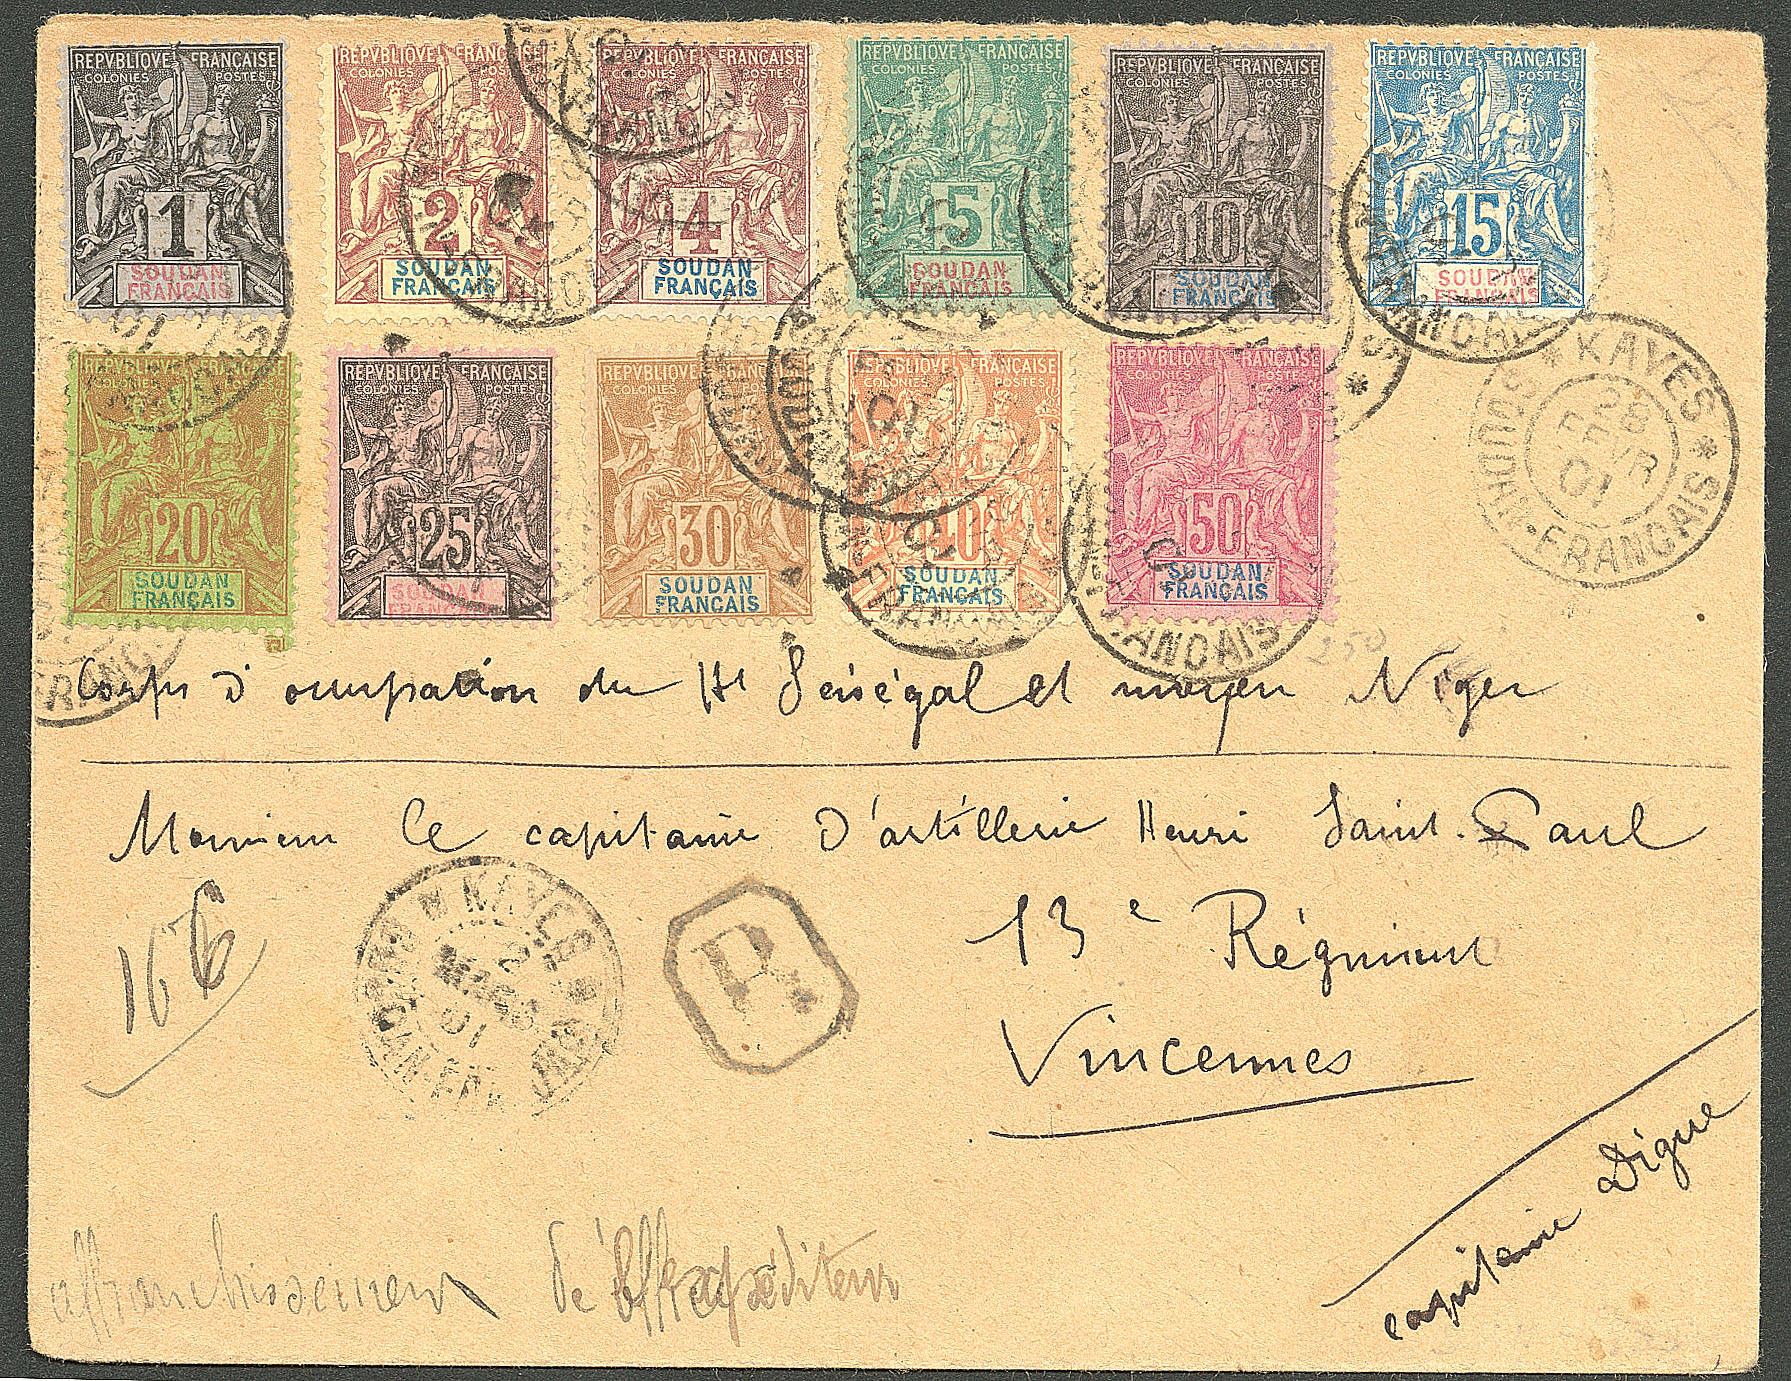 REPVBLIQVE FRANÇAISE
COLONIES POSTES
1
SOUDAN
FRANÇAIS
REPVBLIQVE FRANÇAISE
COLONIES POSTES
2
SOUDAN
FRANÇAIS
REPVBLIQVE FRANÇAISE
COLONIES POSTES
4
SOUDAN
FRANÇAIS
REPVBLIQVE FRANÇAISE
COLONIES POSTES
5
SOUDAN
FRANÇAIS
REPVBLIQVE FRANÇAISE
COLONIES POSTES
10
SOUDAN
FRANÇAIS
REPVBLIQVE FRANÇAISE
COLONIES POSTES
15
SOUDAN
FRANÇAIS
REPVBLIQVE FRANÇAISE
COLONIES POSTES
20
SOUDAN
FRANÇAIS
REPVBLIQVE FRANÇAISE
COLONIES POSTES
25
SOUDAN
FRANÇAIS
REPVBLIQVE FRANÇAISE
COLONIES POSTES
30
SOUDAN
FRANÇAIS
REPVBLIQVE FRANÇAISE
COLONIES POSTES
40
SOUDAN
FRANÇAIS
REPVBLIQVE FRANÇAISE
COLONIES POSTES
50
SOUDAN
FRANÇAIS
* KAYES *
SOUDAN-FRANCAIS
28
FEVR
01
250
Corps d'occupation du Ht Sénégal et moyen Niger
Monsieur le capitaine d'artillerie Henri Saint-Paul
13e Régiment
Vincennes
KAYES
2
MARS
01
R
capitaine Digue
affranchissement de expéditeur